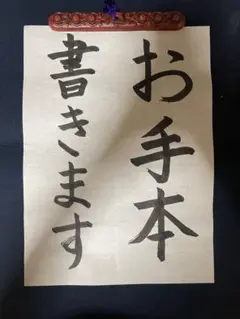 お手本
書きます